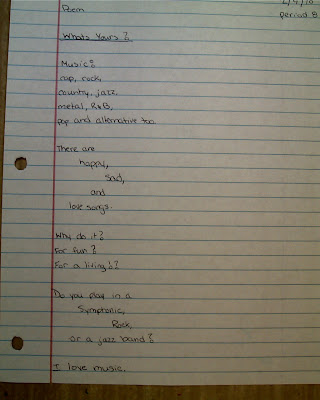 Poem
period 8
What's Yours?
Music?
rap, rock,
country, jazz,
metal, R&B,
pop and alternative too.
There are
happy,
sad,
and
love songs.
Why do it?
For fun?
For a living?
Do you play in a
Symphonic,
Rock,
or a jazz band?
I love music.